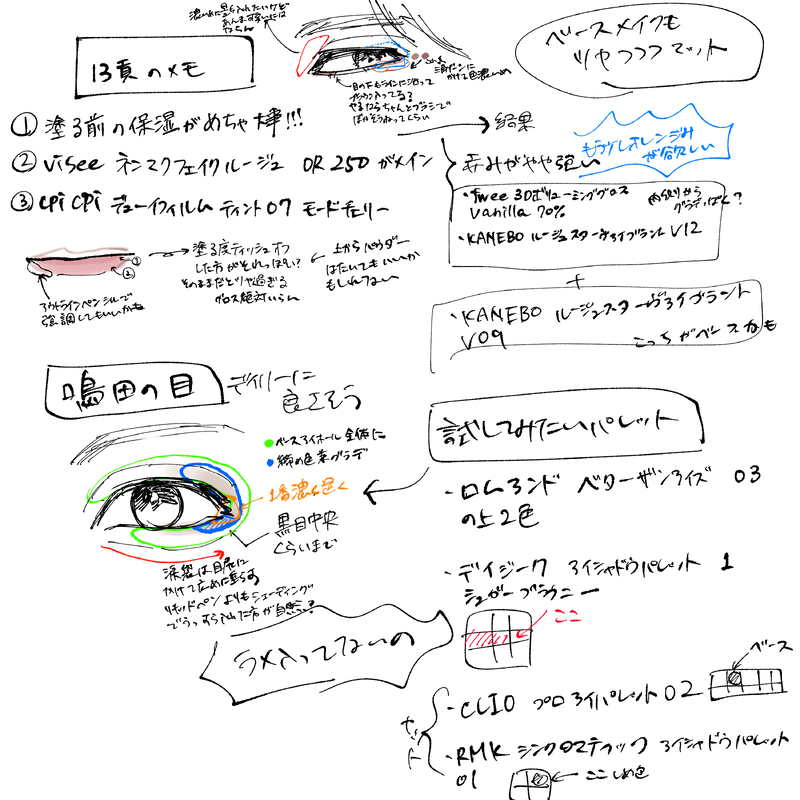 13頁のメモ
ベースメイクも
ツヤっつつマット
目の下もラインに沿って
① 塗る前の保湿がめちゃ大事!!!
② visee ネンマクフェイクルージュ OR250 がメイン
③ cpicpi デューイフィルムティント07 モードチェリー
→ 結果
赤みがやや強い
もう少しオレンジみ
が欲しい
・fwee 3Dボリューミンググロス
vanilla 70%
内側から
グラデっぽく?
・KANEBO ルージュスターヴァイブラント V12
+
・KANEBO ルージュスターヴァイブラント
V09
こっちがベースかも
①
②
アウトラインペンシルで
強調してもいいかも
→ 塗る度ティッシュオフ
した方がそれっぽい?
そのままだとツヤ過ぎる
グロス絶対いらん
← 上からパウダー
はたいてもいいか
もしれない
鳴田の目
デイリーに
良さそう
ベースアイホール全体に
締め色菜グラデ
1番濃い色く
黒目中央
くらいまで
涙袋は目尻に
かけて広めに塗らす
リキッドペンよりもシェーディング
でうっすら入れた方が自然?
試してみたいパレット
・ロムアンド ベターザンアイズ 03
の上2色
・デイジーク アイシャドウパレット 1
シュガーブラウニー
ここ
ラメ入ってないの
・CLIO プロアイパレット02
ベース
セット
・RMK シンクロマティック アイシャドウパレット
01
ここしめ色